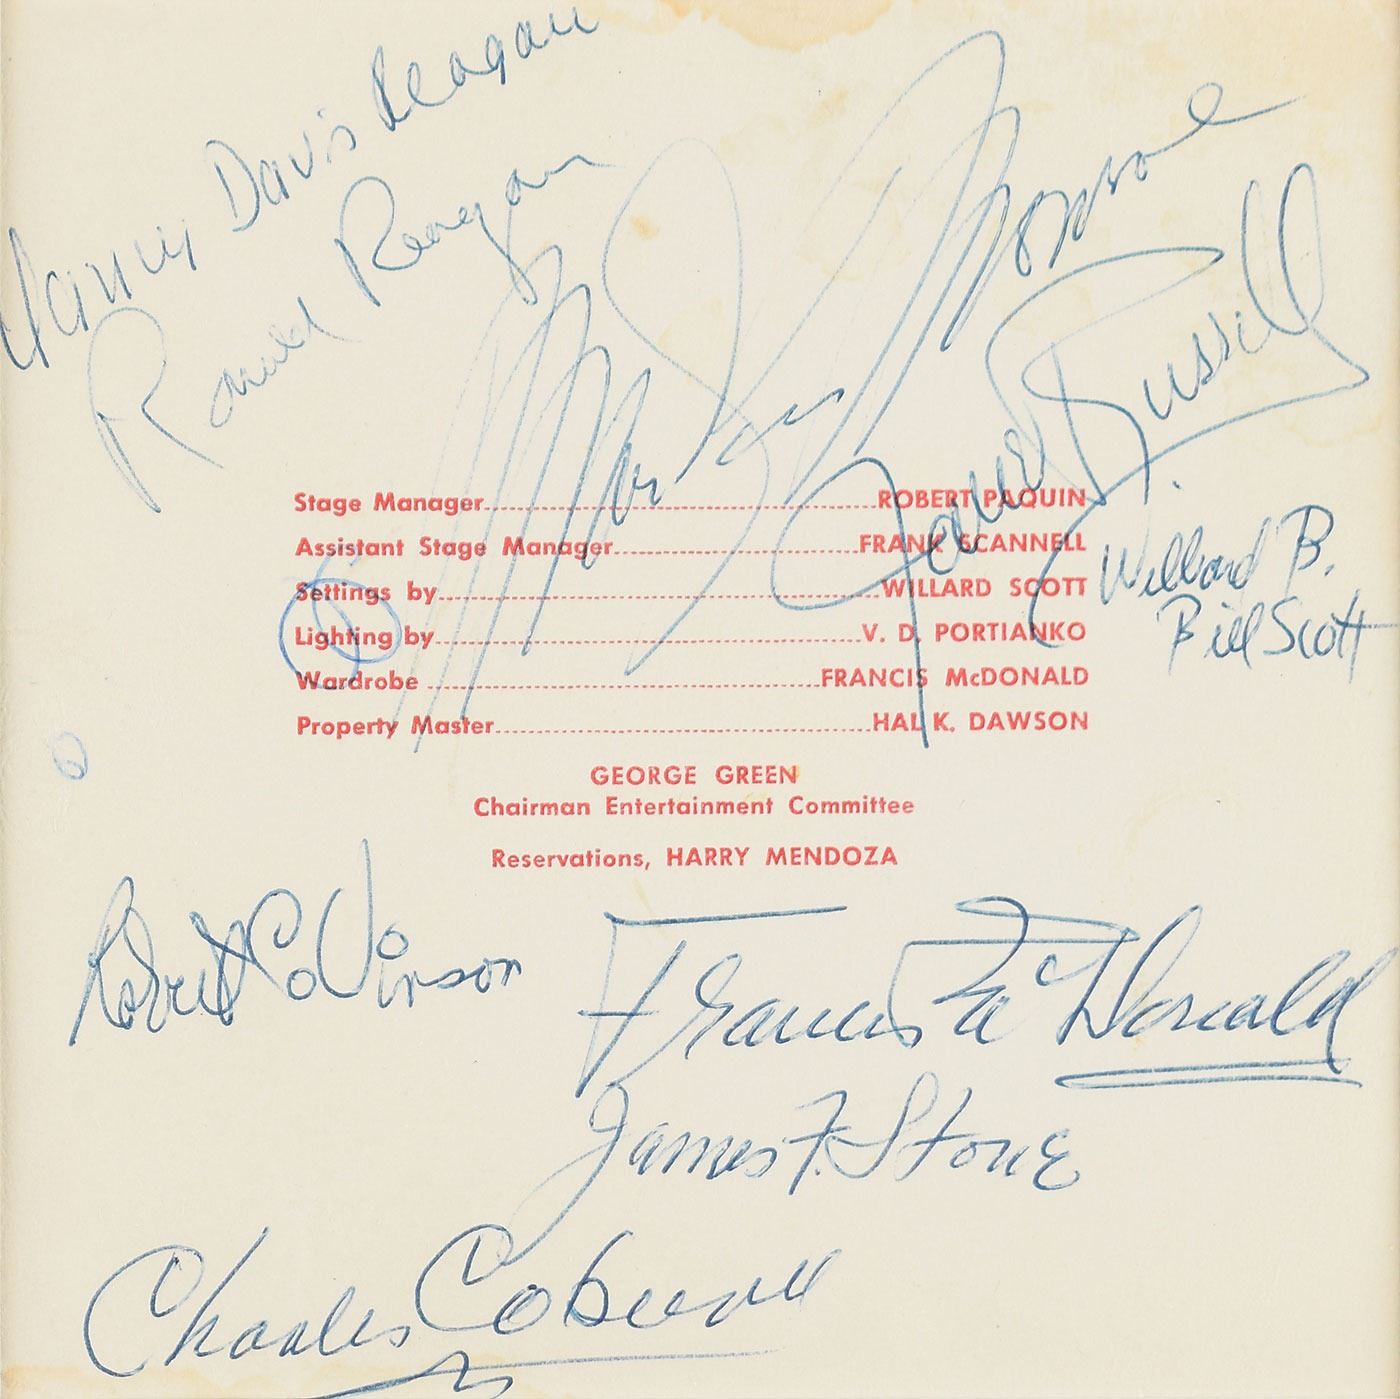 Nancy Davis Reagan
Ronald Reagan
Marilyn Monroe
Jane Russell
Stage Manager........ROBERT PAQUIN
Assistant Stage Manager........FRANK SCANNELL
Settings by........WILLARD SCOTT
Lighting by........V. D. PORTIANKO
Wardrobe........FRANCIS McDONALD
Property Master........HAL K. DAWSON
Willard B.
Bill Scott
GEORGE GREEN
Chairman Entertainment Committee
Reservations, HARRY MENDOZA
Robert Co Vinson
Francis McDonald
James F. Stone
Charles Coburn